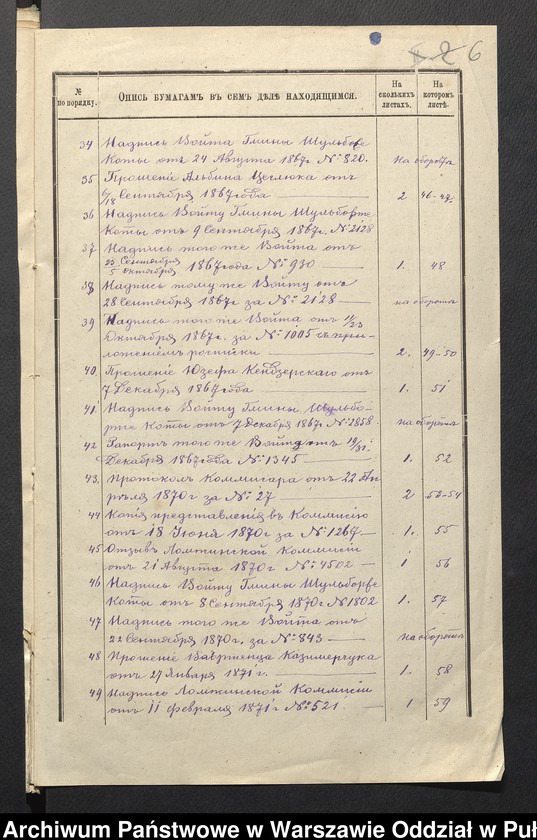 6
№ по порядку.
Опись бумагамъ въ семъ дѣлѣ находящимся.
На сколькихъ листахъ.
На которомъ листѣ.
34 Надпись Войта Гмины Шульборже
Коты отъ 24 Августа 1867г. № 820. на оборотѣ
35 Прошеніе Альбина отъ
6/18 Сентября 1867 года 2 46-47
36 Надпись Войту Гмины Шульборже
Коты отъ 9 Сентября 1867г. № 2128
37 Надпись того же Войта отъ
23 Сентября
5 Октября 1867 года № 930 1. 48
38 Надпись тому же Войту отъ
28 Сентября 1867г за № 2128 на оборотѣ
39 Надпись того же Войта отъ 11/23
Октября 1867г. за № 1005 съ при-
ложеніемъ росписки 2. 49-50
40 Прошеніе Юзефа отъ
7 Декабря 1867 года 1. 51
41. Надпись Войту Гмины Шульбо-
рже Коты отъ 7 Декабря 1867г. № 2858. на оборотѣ
42 Рапортъ того же Войта отъ 19/31
Декабря 1867 года № 1345 1. 52
43. Протоколъ Коммисара отъ 22 Ап
рѣля 1870г за № 27 2 53-54
44 Копія представленія въ Коммисію
отъ 18 Іюня 1870г за № 1267 1. 55
45 Отзывъ Ломжинской Коммисіи
отъ 21 Августа 1870г № 4502 1 56
46 Надпись Войту Гмины Шульборже
Коты отъ 8 Сентября 1870г № 1802 1. 57
47 Надпись того же Войта отъ
22 Сентября 1870г. за № 843 на оборотѣ
48 Прошеніе Казимерчука
отъ 27 Января 1871г. 1. 58
49 Надпись Ломжинской Коммисіи
отъ 11 Февраля 1871г № 521 1 59
Archiwum Państwowe w Warszawie Oddział w Puł